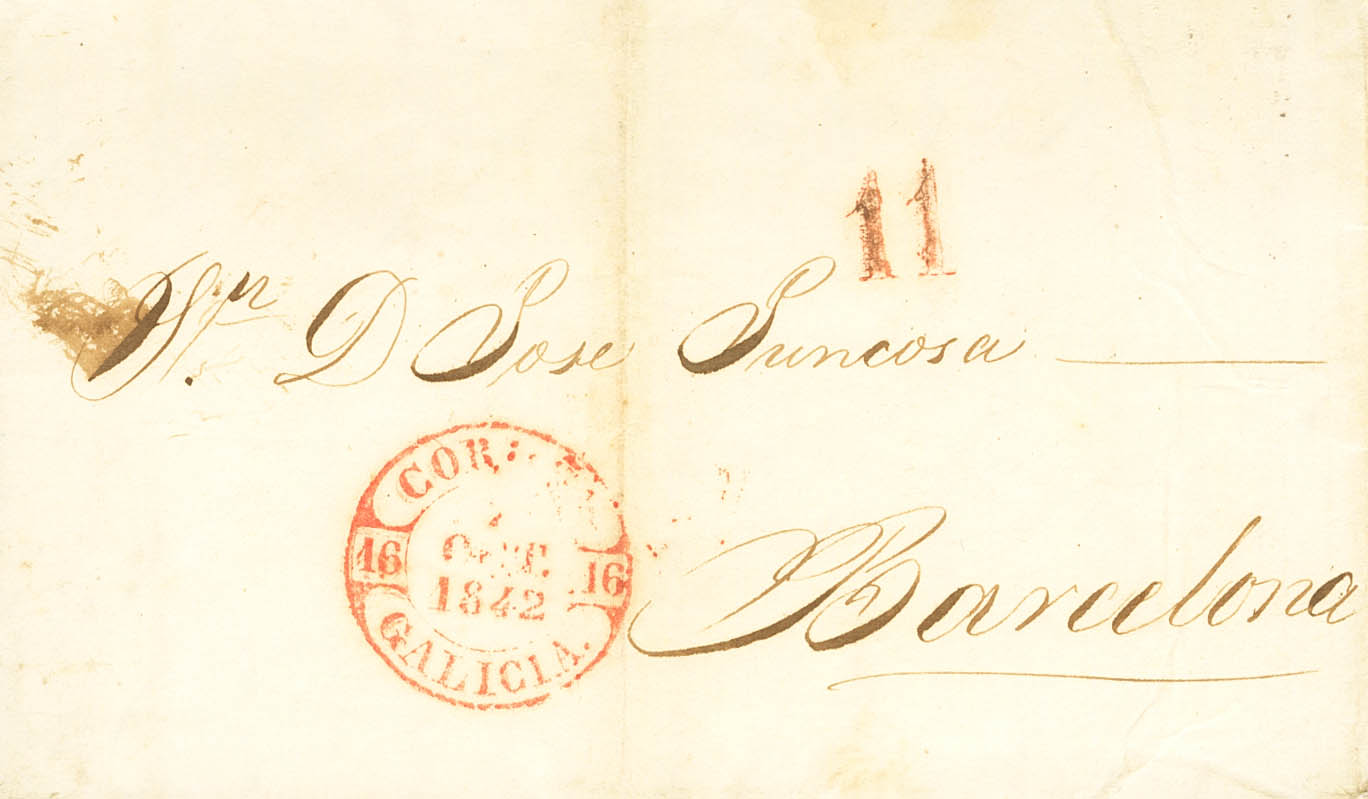 11
Sr. D Jose Juncosa
COR
16 16
1842
GALICIA.
Barcelona